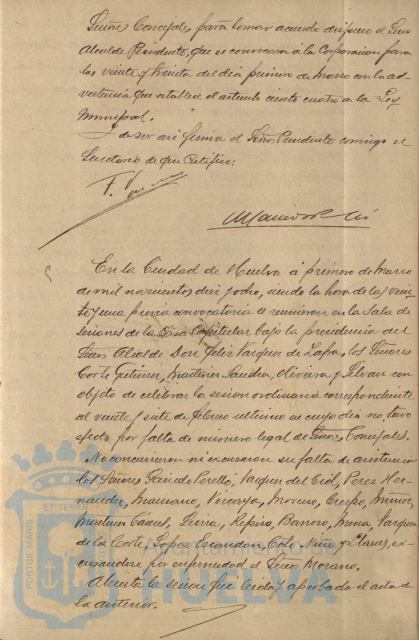 Señores Concejales para tomar acuerdo dispuso el Señor
Alcalde Presidente, que se convocara á la Corporación para
las veinte y treinta del dia primero de Marzo con la ad-
vertencia que establece el articulo ciento cuatro de la Ley
Municipal.
Y de ser así firma el Señor Presidente conmigo el
Secretario de que certifico:
En la Ciudad de Huelva á primero de Marzo
de mil novecientos diez y ocho, siendo la hora de las vein-
te y una previa convocatoria se reunieron en la Sala de
Sesiones de la Casa Capitular bajo la presidencia del
Señor Alcalde Don Felix Vazquez de Zafra, los Señores
Corte Gutierrez, Martinez Sandra, Oliveira y Galvan con
objeto de celebrar la sesión ordinaria correspondiente
al veinte y siete de febrero ultimo en cuyo dia no tuvo
efecto por falta de número legal de Señores Concejales.
No concurrieron ni excusaron su falta de asistencia
los Señores Garrido Perelló, Vazquez del Cid, Perez Her-
nandez, Vizcaya, Moreno, Crespo, Muñoz,
Martin Serra, Repiso, Barroso, Mena, Vazquez
de la Corte, Lopez Escandon, Coto, Niño y Llanes, ex-
cusandose por enfermedad el Señor Morano.
Abierta la sesión fué leida y aprobada el acta de
la anterior.
PORTUS MARIS ET TERRAE
Ayuntamiento
HUELVA